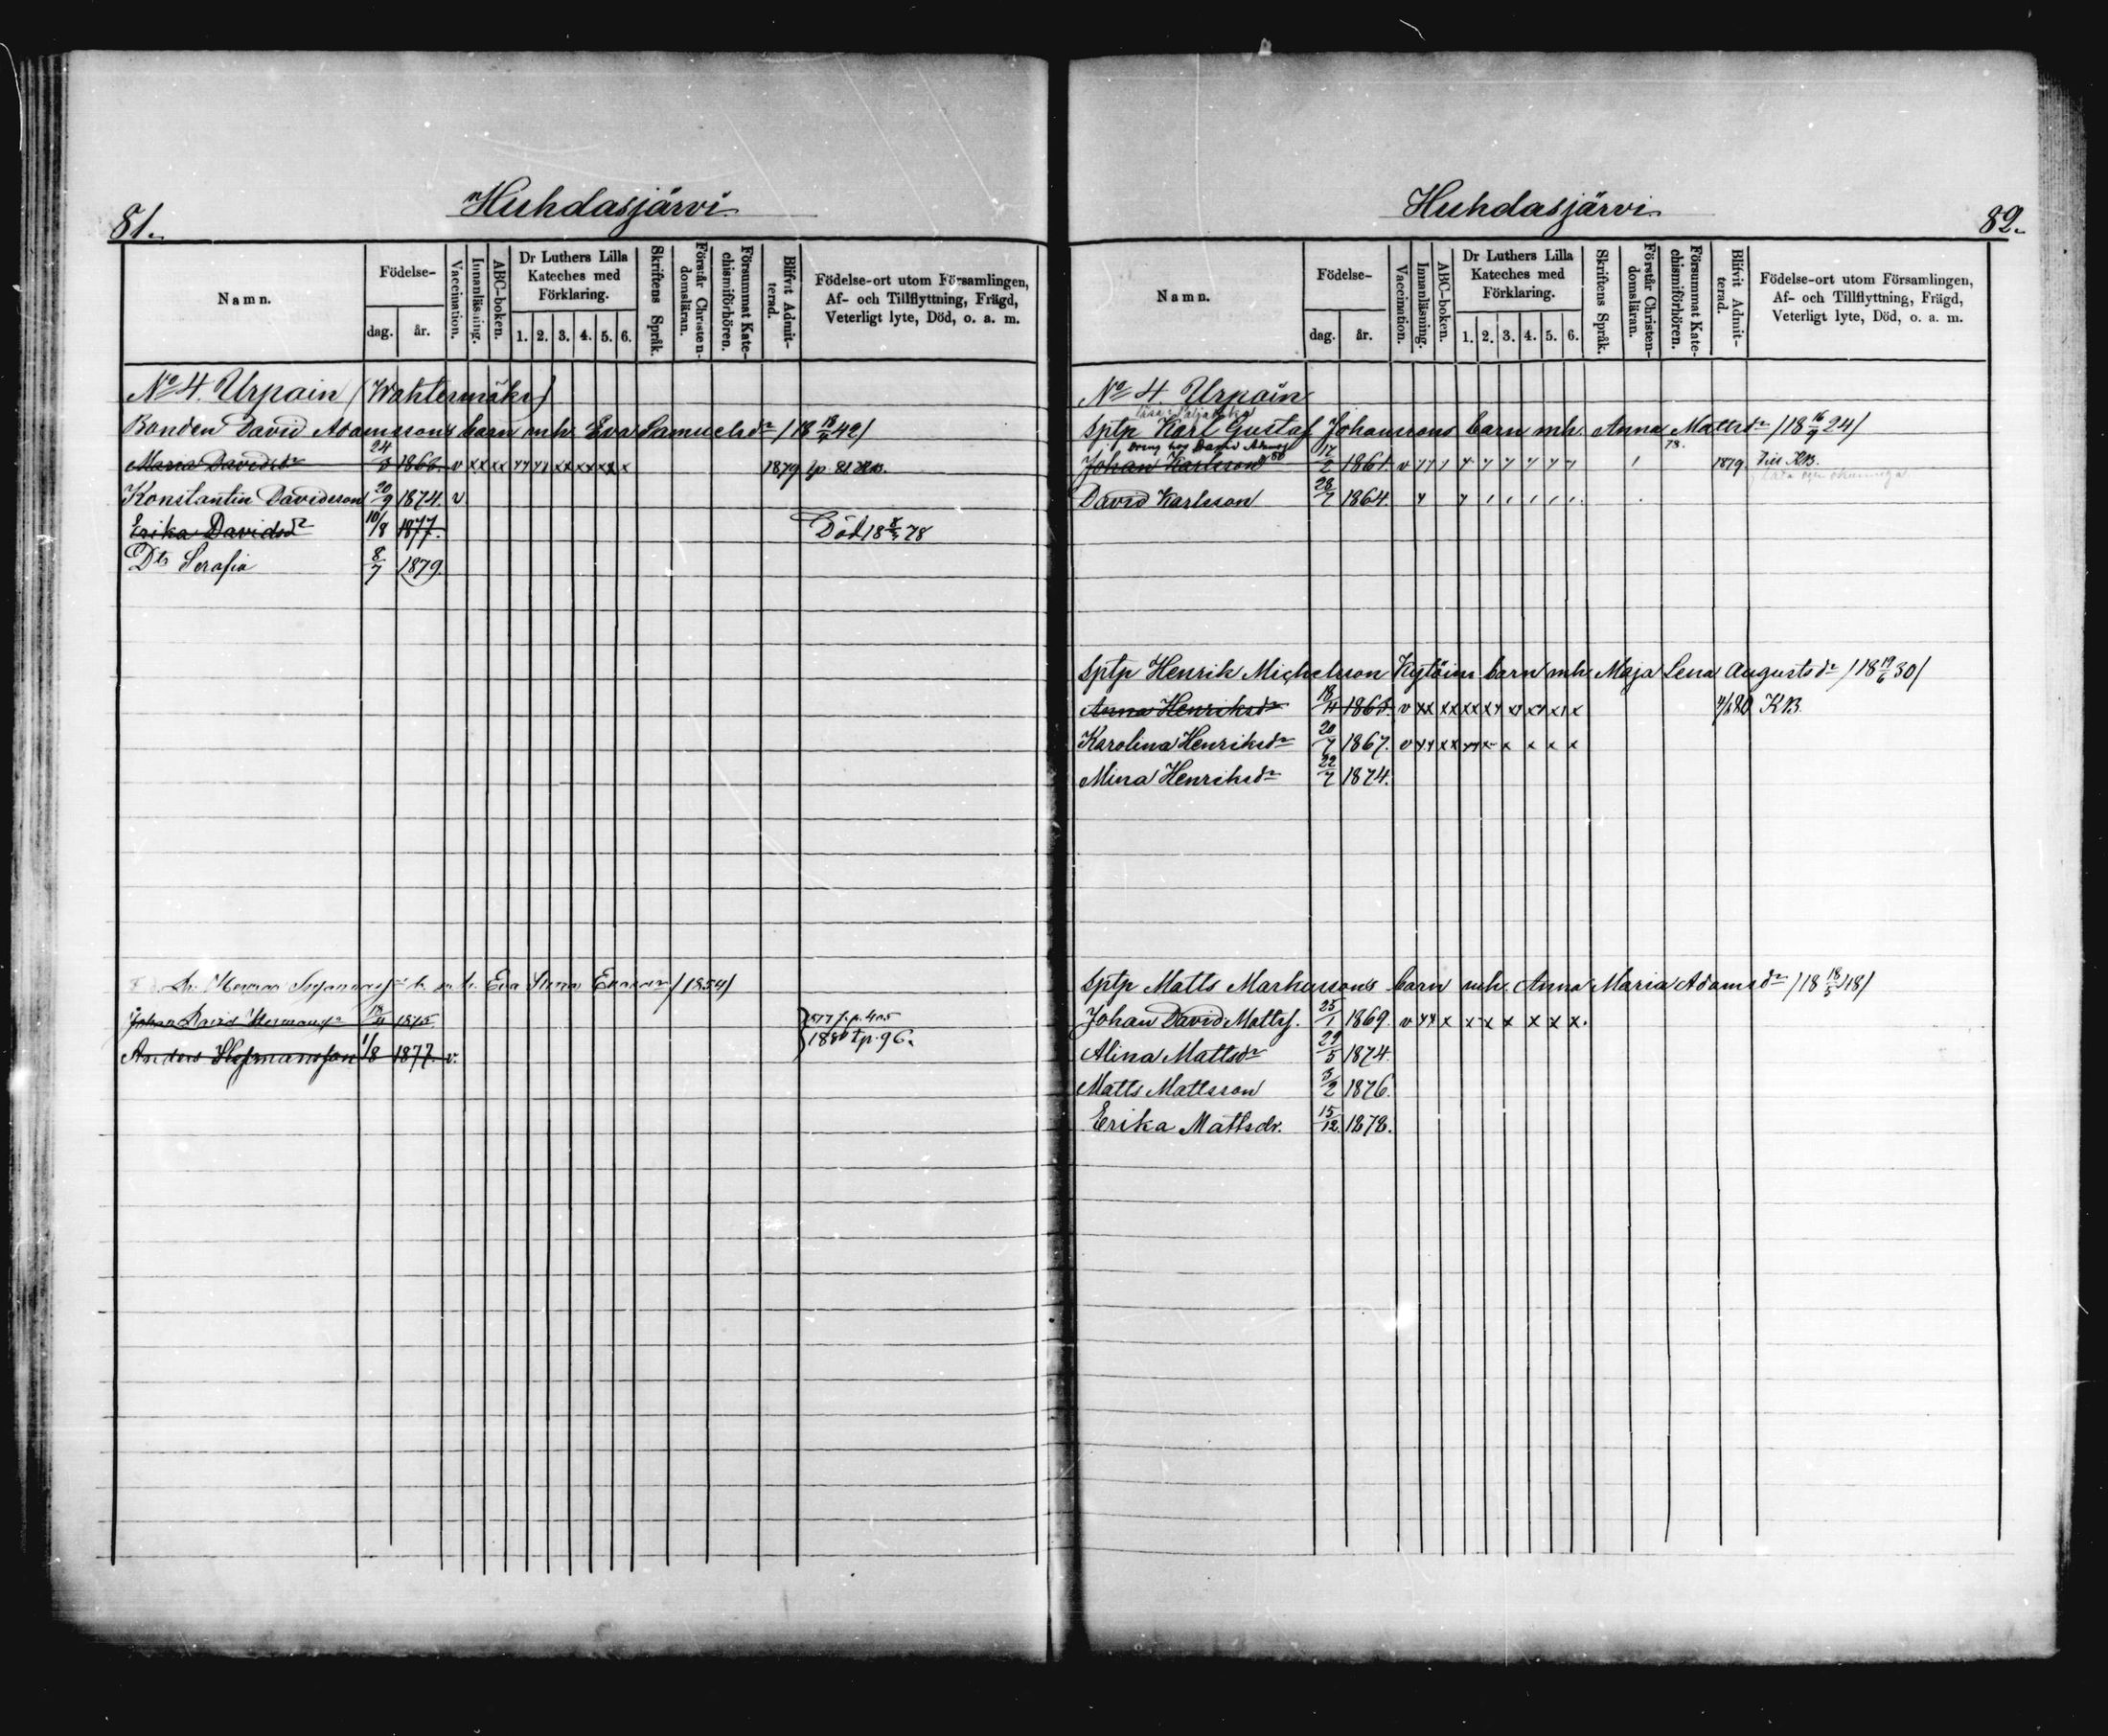 81.
Huhdasjärvi
Namn.
Födelse-
dag.
år.
Vaccination.
Innanläsning.
ABC-boken.
Dr Luthers Lilla Kateches med Förklaring.
1. 2. 3. 4. 5. 6.
Skriftens Språk.
Förstår Christendomsläran.
Försummat Katechismiförhören.
Blifvit Admitterad.
Födelse-ort utom Församlingen,
Af- och Tillflyttning, Frägd,
Veterligt lyte, Död, o. a. m.
No 4. Urpain (Wahtermäki)
Bonden David Adamssons barn mh. Eva Samuelsdr /18 42/
Maria Davidsdr 24 1863. v xx xx xx xx xx x 1879
Konstantin Davidsson 20/9 1874. v
Erika Davidsdr 10/8 1877. Död 18 78
Dtr Serafia 8/7 1879.
Eva Stina /1854/
Johan David 1875
Anders Hermansson 1/8 1877. v.
p. 96.
82.
Huhdasjärvi
Namn.
Födelse-
dag.
år.
Vaccination.
Innanläsning.
ABC-boken.
Dr Luthers Lilla Kateches med Förklaring.
1. 2. 3. 4. 5. 6.
Skriftens Språk.
Förstår Christendomsläran.
Försummat Katechismiförhören.
Blifvit Admitterad.
Födelse-ort utom Församlingen,
Af- och Tillflyttning, Frägd,
Veterligt lyte, Död, o. a. m.
No 4 Urpain
Sptp Karl Gustaf Johanssons barn mh. Anna Mattsdr /18 16/9 24/
78.
Johan Karlsson 17/2 1861. v 1879. KB.
David Karlsson 28/7 1864.
Sptp Henrik Michelsson Kytöins barn mh. Maja Lena Augustsdr /18 19/6 30/
Anna Henriksdr 18/4 1863. v xx xx xx xx x x x x 80 KB.
Karolina Henriksdr 20/7 1867. v x x x x x
Mina Henriksdr 22/7 1874.
Sptp Matts Markussons barn mh. Anna Maria Adamsdr /18 18/5 48/
Johan David Mattss. 25/1 1869. v x x x x x x x.
Alina Mattsdr 29/5 1874.
Matts Mattsson 3/2 1876.
Erika Mattsdr. 15/12. 1878.